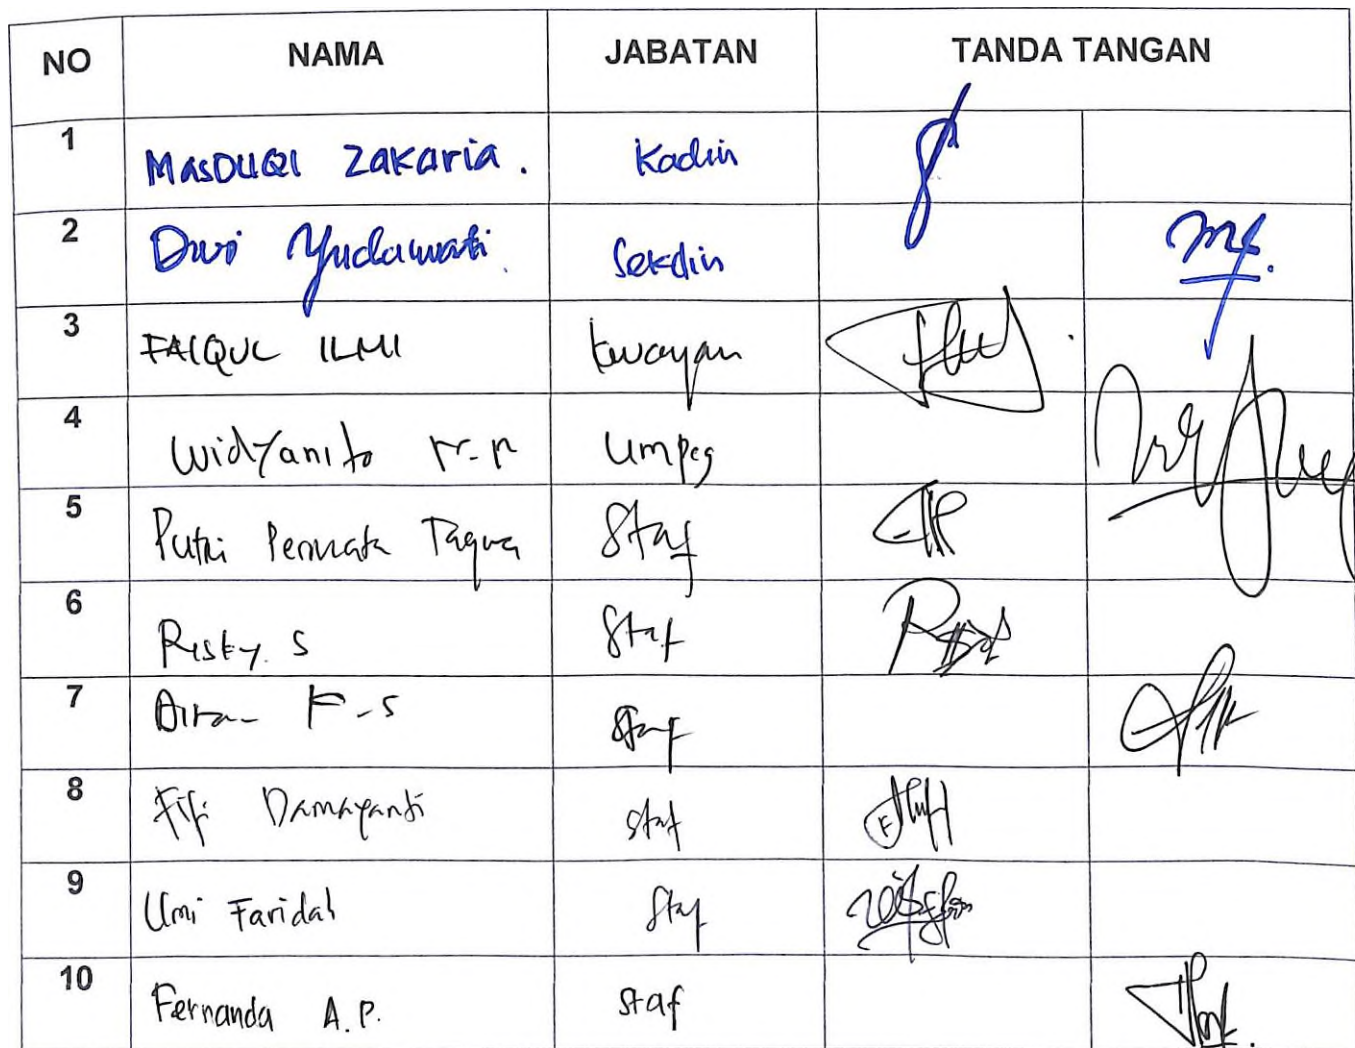 NO NAMA JABATAN TANDA TANGAN
1 MASDUQI ZAKARIA. Kadin
2 Dwi Yudawati. Sekdin
3 FAIQUL ILMI
4 Widyanito Umpeg
5 Putri Permata Taqwa Staf
6 Risky. S Staf
7 F-S Staf
8 Fifi Damayanti Staf
9 Umi Faridah Staf
10 Fernanda A.P. Staf